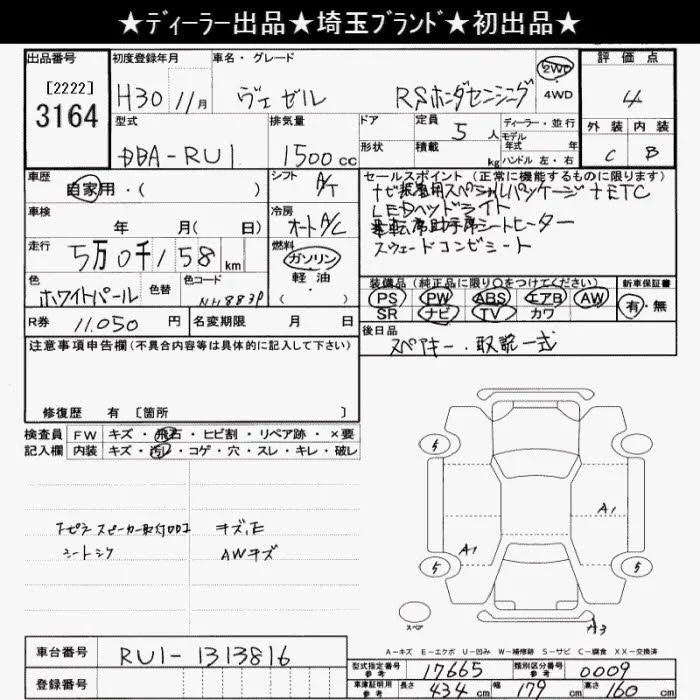 ★ディーラー出品★埼玉ブランド★初出品★
出品番号 初度登録年月 車名・グレード 評価点
[2222] 3164 H30 11月 ヴェゼル RSホンダセンシング 2WD・4WD 4
外装 内装
C B
型式 排気量 ドア 定員 5人 ディーラー・並行
モデル年式 年式
DBA-RU1 1500cc 形状 積載 kg ハンドル 左・右
車歴 シフト セールスポイント(正常に機能するものに限ります)
自家用・( ) A/T ナビ装着用スペシャルパッケージ+ETC
車検 冷房 LEDヘッドライト
年 月( 日) オートA/C 運転席助手席シートヒーター
走行 燃料 スウェードコンビシート
5万0千158km ガソリン・軽油・( )
色 色替 色コード 装備品(純正品に限り○をつけてください) 新車保証書
ホワイトパール NH883P PS PW ABS エアB AW 有・無
SR ナビ TV カワ
R券 11.050円 名変期限 月 日 後日品
スペアキー・取説一式
注意事項申告欄(不具合内容等は具体的に記入して下さい)
修復歴 有 [箇所 ]
検査員 FW キズ・飛石・ヒビ割・リペア跡・×要
記入欄 内装 キズ・汚レ・コゲ・穴・スレ・キレ・破レ
5
A1
キズ、E
シートシワ AWキズ
A1
5 5
スペア
A3
A-キズ E-エクボ U-凹み W-補修跡 S-サビ C-腐食 XX-交換済
車台番号 RU1-1313816
型式指定番号 参考 17665 類別区分番号 参考 0009
登録番号
車庫証明用 参考 長さ 434cm 幅 179cm 高さ 160cm